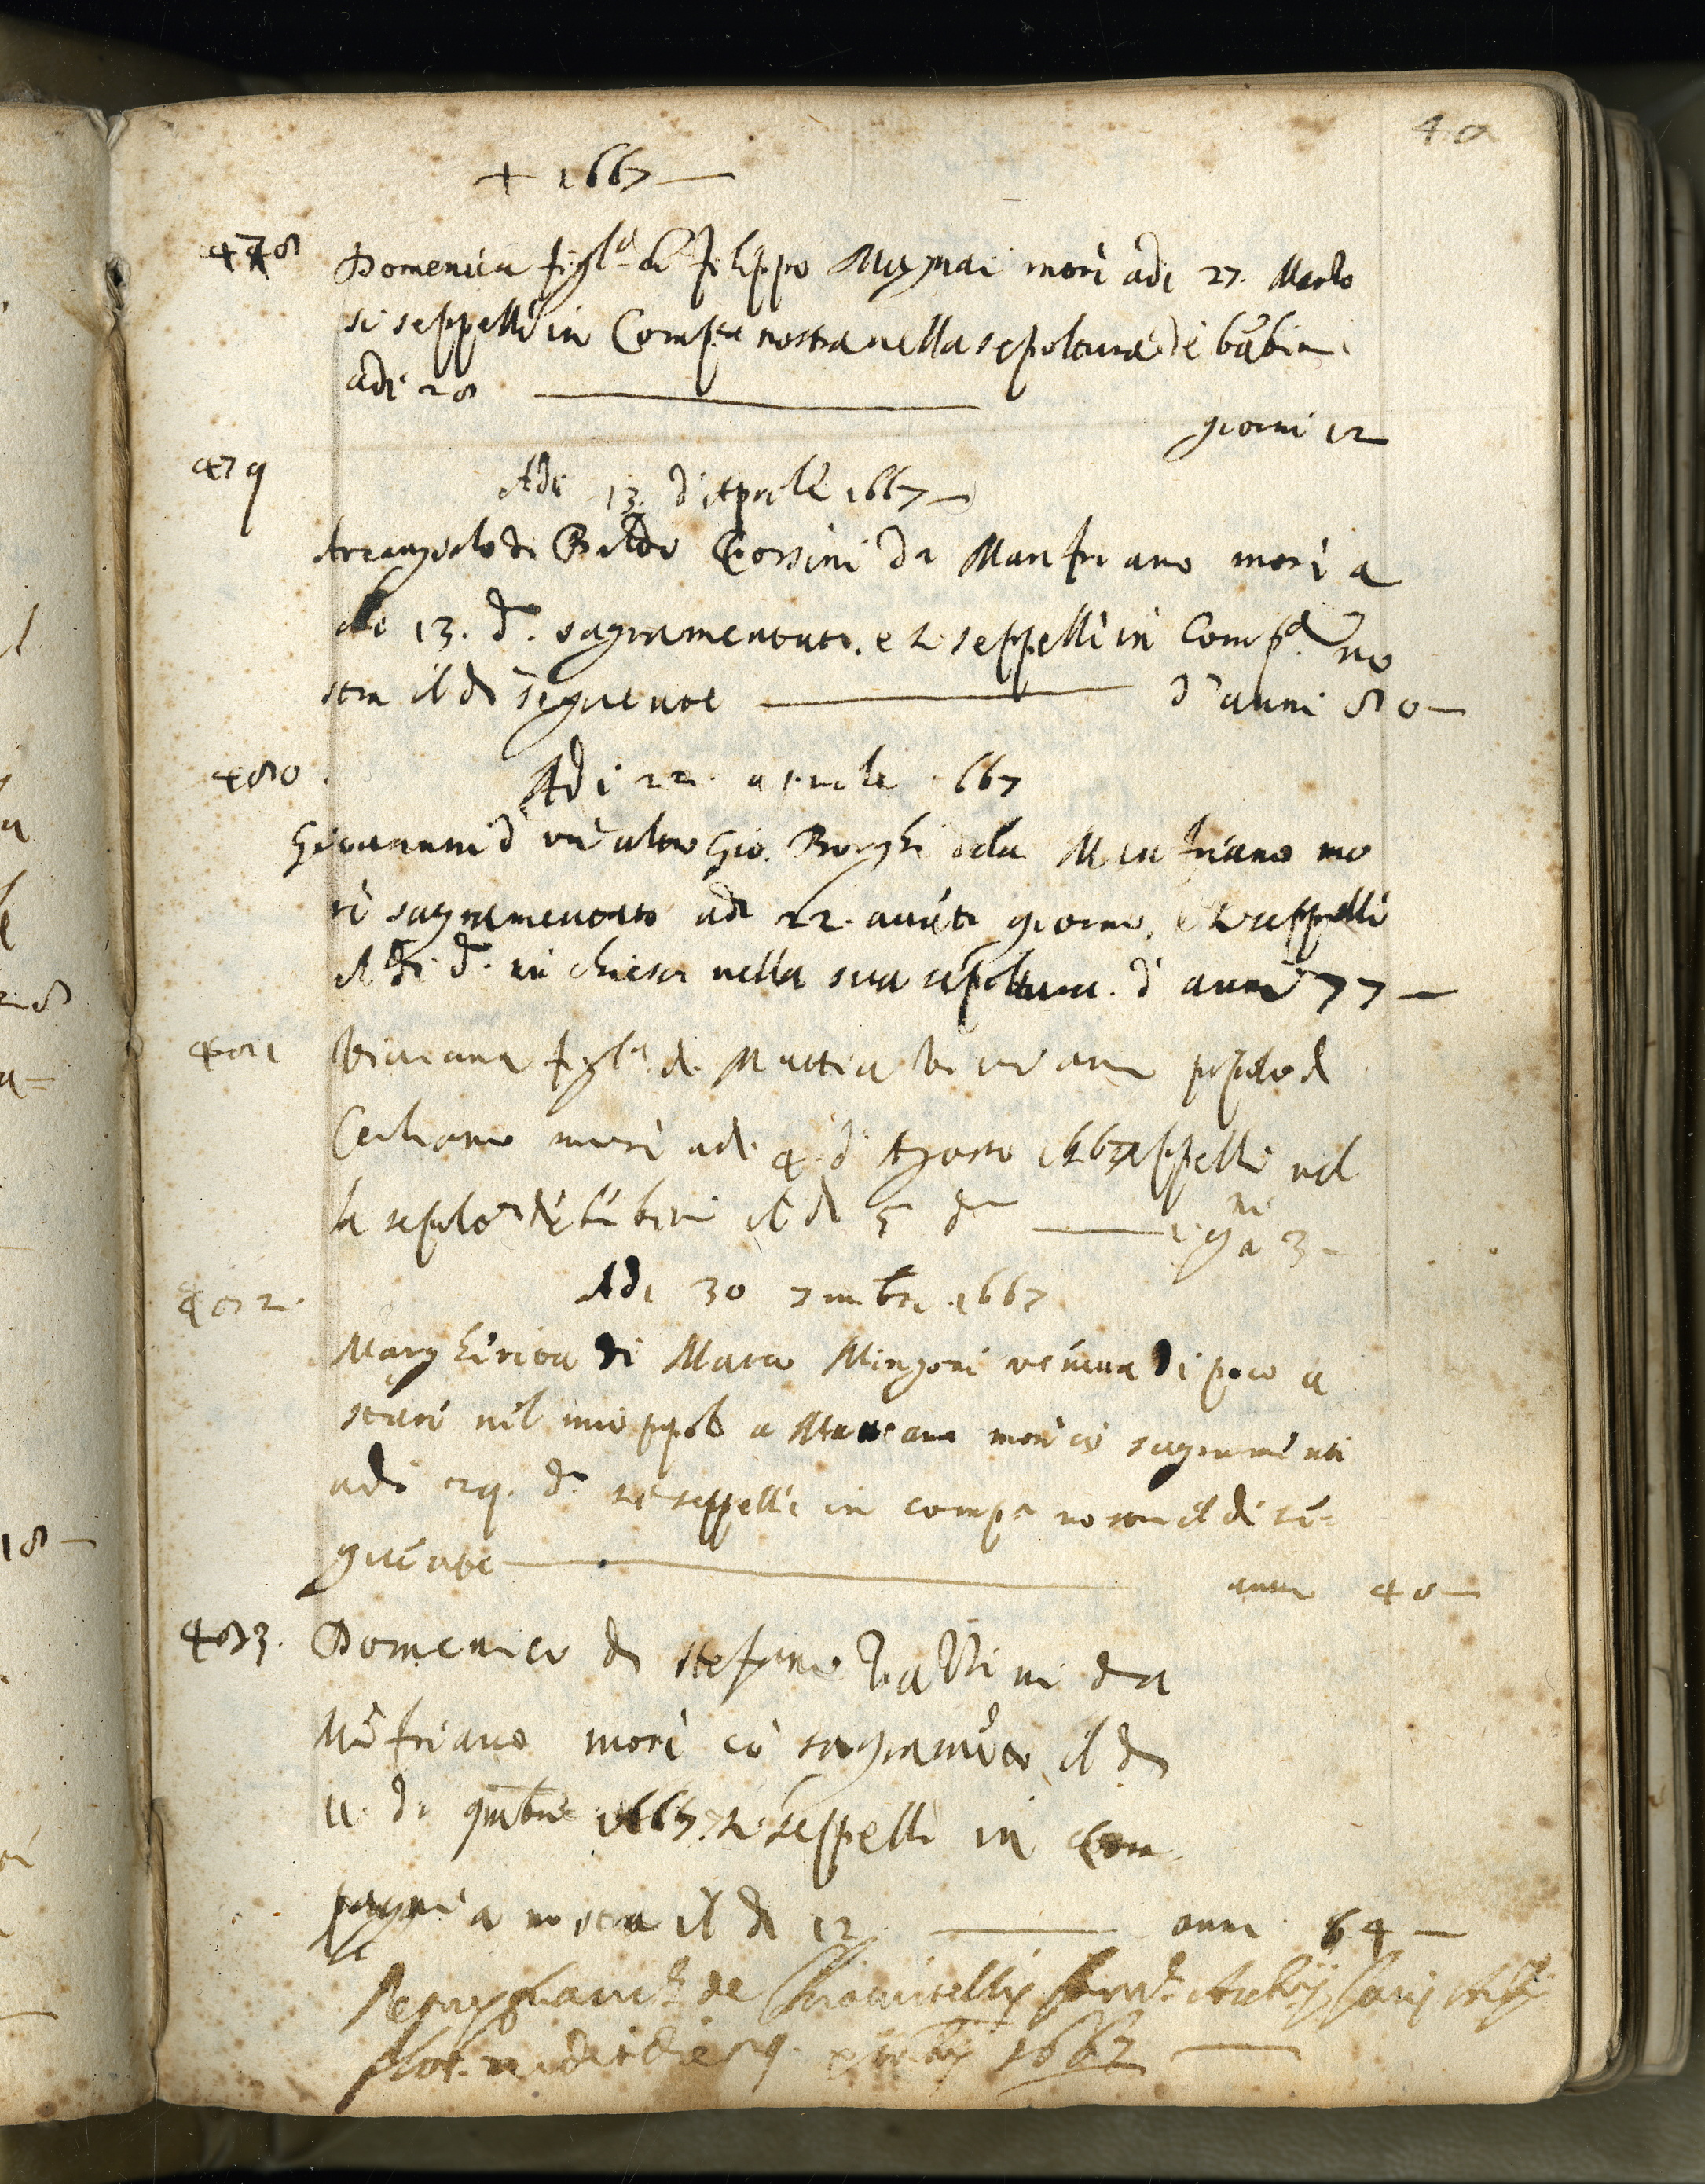 40
+ 1667
478 Domenica figl.a di Filippo Mugnai morì adi 27. Marzo
si seppellì in Comp.a nostra nella sepoltura de bābini
adi 28
giorni 12
479 Adi 13. d'Aprile 1667
Arcangiolo di Baldo Corsini da Manfriano morì a
di 13. d.o sagramentato. e si seppellì in Comp.a no
stra il dì seguente d'anni 80
480. Adi 22. aprile 1667
Giovanni d'un altro Gio. Borghi dela Manfriano mo
rì sagramentato adi 22. giorno, e si seppellì
il di d.o in chiesa nella sua sepoltura. d'anni 77
481 Viviana figl.a di Mattia Viviani popolo di
Cerliano morì adi 4 d'Agosto 1667 si seppellì nel
la sepolt.a de bābini il dì 5 d.o 3
482. Adi 30 7mbre. 1667
Margherita di Marco Minzoni venuta di poco a
stare nel mio popolo a morì cō sagramenti
adi 29. d.o si seppellì in comp.a nostra il dì se=
guente anni 40
483. Domenico di Stefano Tassini da
Māfriano morì cō sagramēto il dì
11 di 9mbre 1667. si seppellì in Com
pagnia nostra il dì 12 anni 64
de
1667